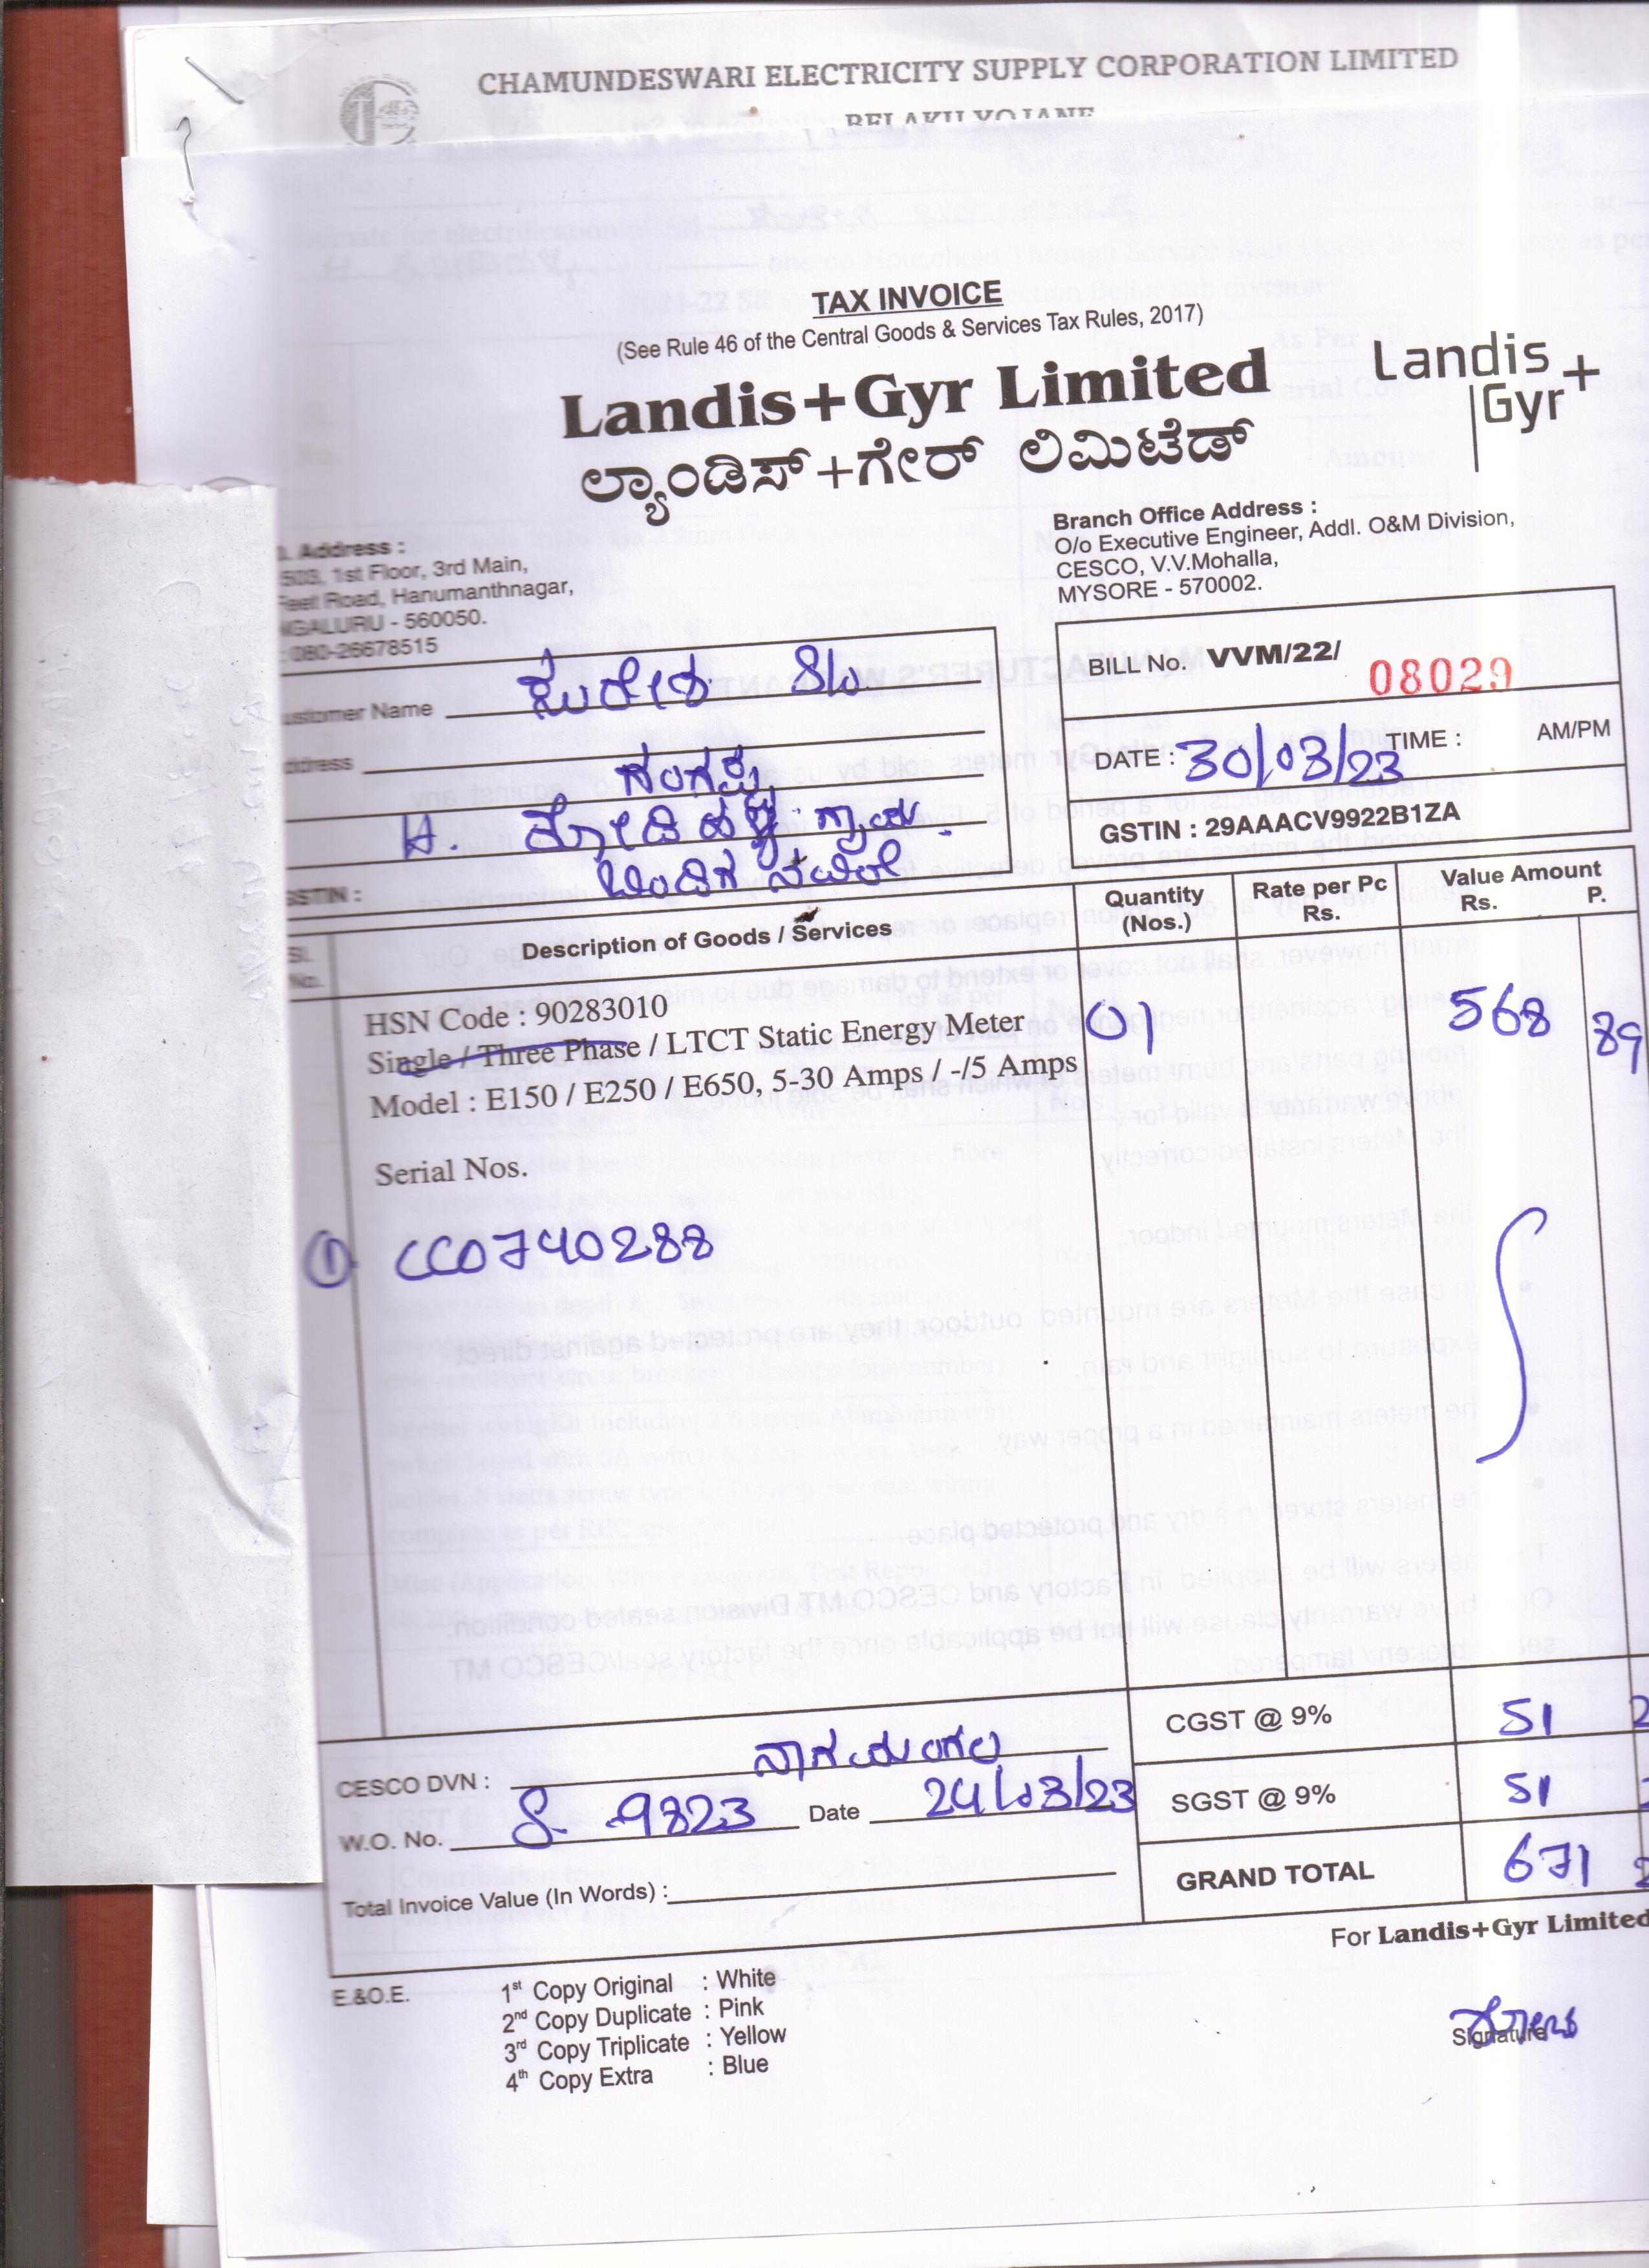 CHAMUNDESWARI ELECTRICITY SUPPLY CORPORATION LIMITED
BELAKU YOJANE
TAX INVOICE
(See Rule 46 of the Central Goods & Services Tax Rules, 2017)
Landis+Gyr Limited
Landis
Gyr +
ಲ್ಯಾಂಡಿಸ್+ಗೇರ್ ಲಿಮಿಟೆಡ್
Address :
503, 1st Floor, 3rd Main,
Feet Road, Hanumanthnagar,
NGALURU - 560050.
: 080-26678515
Branch Office Address :
O/o Executive Engineer, Addl. O&M Division,
CESCO, V.V.Mohalla,
MYSORE - 570002.
ustomer Name ಸುರೇಶ S/o
ddress
ಗಂಗಪ್ಪ
H. ಕೋಡಿಹಳ್ಳಿ ಗ್ರಾಮ
ಬಿಂಡಿಗನವಿಲೆ
GSTIN :
BILL No. VVM/22/ 08029
DATE : 30/03/23 TIME : AM/PM
GSTIN : 29AAACV9922B1ZA
Sl. No. Description of Goods / Services Quantity (Nos.) Rate per Pc Rs. Value Amount Rs. P.
HSN Code : 90283010
Single / Three Phase / LTCT Static Energy Meter 01 568 89
Model : E150 / E250 / E650, 5-30 Amps / -/5 Amps
Serial Nos.
① CC0740288
CGST @ 9% 51 2
CESCO DVN : ನಾಗಮಂಗಲ
SGST @ 9% 51
W.O. No. 9823 Date 24/03/23
GRAND TOTAL 671 2
Total Invoice Value (In Words) :
For Landis+Gyr Limited
E.&O.E.
1st Copy Original : White
2nd Copy Duplicate : Pink
3rd Copy Triplicate : Yellow
4th Copy Extra : Blue
Signature